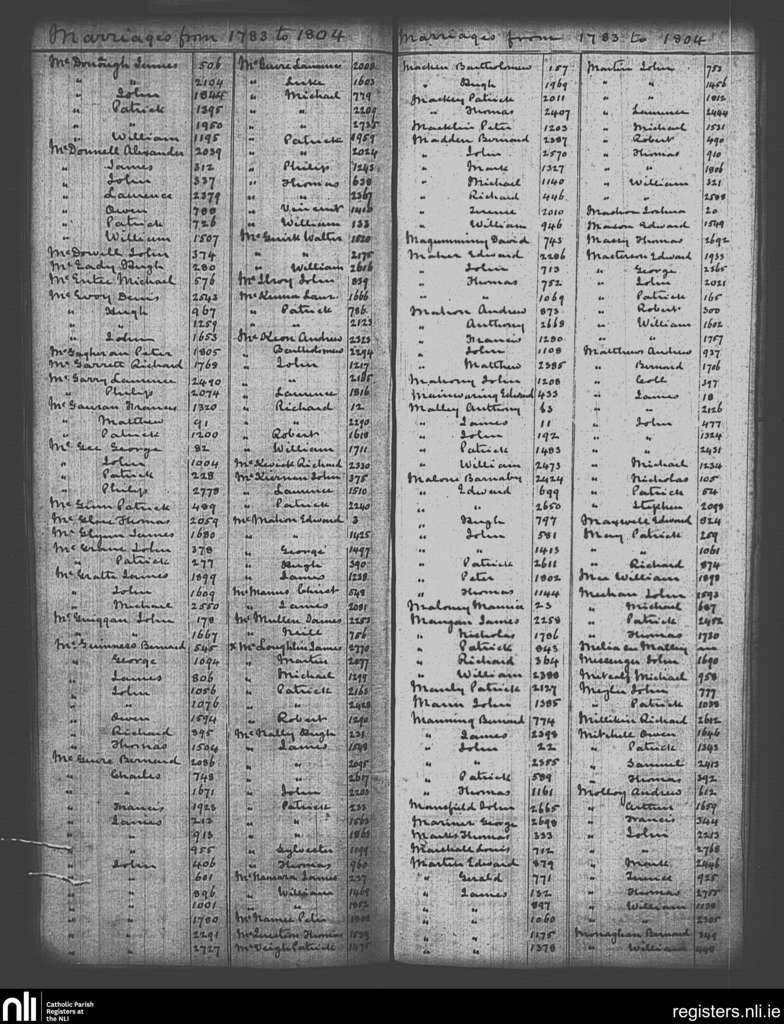 Marriages from 1783 to 1804
McDonough James 506
" " 2104
" John 1844
" Patrick 1395
" " 1950
" William 1195
McDonnell Alexander 2039
" James 312
" John 337
" Laurence 2379
" Owen 788
" Patrick 726
" William 1507
McDowell John 374
McEady Hugh 280
McEntee Michael 576
McEvoy Denis 2543
" Hugh 967
" " 1259
" John 1653
McGagheran Peter 1805
McGarrett Richard 1768
McGarry Laurence 2490
" Philip 2074
McGauran Francis 1320
" Matthew 91
" Patrick 1200
McGee George 82
" John 1004
" Patrick 228
" Philip 2778
McGinn Patrick 489
McGlue Thomas 2059
McGlynn James 1680
McGrane John 378
" Patrick 277
McGratte James 1899
" John 1609
" Michael 2550
McGuiggan John 178
" " 1667
McGuinness Bernard 545
" George 1094
" James 806
" John 1056
" " 1076
" Owen 1594
" Richard 395
" Thomas 1504
McGuire Bernard 2086
" Charles 748
" " 1671
" Francis 1923
" James 213
" " 913
" " 955
" John 406
" " 601
" " 896
" " 1001
" " 1780
" " 2291
" " 2727
McGuire Laurence 2008
" Luke 1603
" Michael 779
" " 2209
" " 2735
" Patrick 1959
" " 2024
" Philip 1243
" Thomas 638
" " 2367
" Vincent 1416
" William 133
McGuirk Walter 1520
" " 2175
" William 2616
McIlroy John 839
McKenna Laur 1666
" Patrick 786
" " 2123
McKeon Andrew 2323
" Bartholomew 2294
" John 1217
" " 2185
" Laurence 1816
" Richard 12
" " 2290
" Robert 1618
" William 1711
McKevick Richard 2330
McKiernan John 375
" Laurence 1510
" Patrick 2240
McMahon Edward 3
" " 1425
" George 1497
" Hugh 390
" James 1238
McManus Christ 548
" James 2081
McMullen James 2253
" Neill 756
x McLoughlin James 2770
" Martin 2077
" Michael 1299
" Patrick 2163
" " 2428
" Robert 1290
McNally Hugh 231
" James 1548
" " 2095
" " 2617
" John 2203
" Patrick 233
" " 1563
" " 1863
" Sylvester 1199
" Thomas 960
McNamara James 237
" William 1469
" " 1852
McNamee Peter
McQuestion Thomas 1539
McVeigh Patrick 1375
Marriages from 1783 to 1804
Macken Bartholomew 157
" Hugh 1969
Mackey Patrick 2011
" Thomas 2407
Macklin Peter 1203
Madden Bernard 2387
" John 2570
" Mark 1327
" Michael 1140
" Richard 446
" Terence 2010
" William 946
Magummuny David 743
Maher Edward 2286
" John 713
" Thomas 752
" " 1069
Mahon Andrew 873
" Anthony 2668
" Francis 1280
" John 1108
" Matthew 2385
Mahony John 1208
Mainwaring Edward 433
Malley Anthony 63
" James 11
" John 192
" Patrick 1483
" William 2473
Malone Barnaby 2424
" Edward 699
" " 2650
" Hugh 797
" John 581
" " 1413
" Patrick 2611
" Peter 1802
" Thomas 1144
Maloney Maurice 23
Mangan James 2258
" Nicholas 1786
" Patrick 843
" Richard 364
" William 2388
Manly Patrick 2127
Mann John 1385
Manning Bernard 774
" James 2393
" John 22
" " 2355
" Patrick 589
" Thomas 1161
Mansfield John 2665
Mariner George 2698
Marks Thomas 333
Marshall Louis 712
Martin Edward 879
" Gerald 771
" James 132
" " 897
" " 1060
" " 1175
" " 1378
Martin John 753
" " 1456
" " 1812
" Laurence 2444
" Michael 1531
" Robert 490
" Thomas 910
" " 1806
" William 321
" " 2588
Mashon Joshua 20
Mason Edward 1549
Massey Thomas 2692
Masterson Edward 1933
" George 2365
" John 2021
" Patrick 165
" Robert 300
" William 1602
" " 1757
Matthews Andrew 937
" Bernard 1706
" Coll 397
" James 18
" " 2126
" John 477
" " 1324
" " 2431
" Michael 1234
" Nicholas 105
" Patrick 54
" Stephen 2098
Maxwell Edward 824
May Patrick 259
" " 1061
" Richard 874
Mee William 1898
Meehan John 1593
" Michael 687
" Patrick 2452
" Thomas 1730
Melia see Malley
Messenger John 1690
Metcalf Michael 958
Meyler John 777
" Patrick 1038
Milliken Richard 2602
Mitchell Owen 1646
" Patrick 1343
" Samuel 2413
" Thomas 392
Molloy Andrew 612
" Arthur 1659
" Francis 344
" John 2213
" " 2768
" Mark 2446
" Terence 925
" Thomas 2755
" William 1138
" " 2305
Monaghan Bernard 349
" William 448
nli
Catholic Parish
Registers at
the NLI
registers.nli.ie